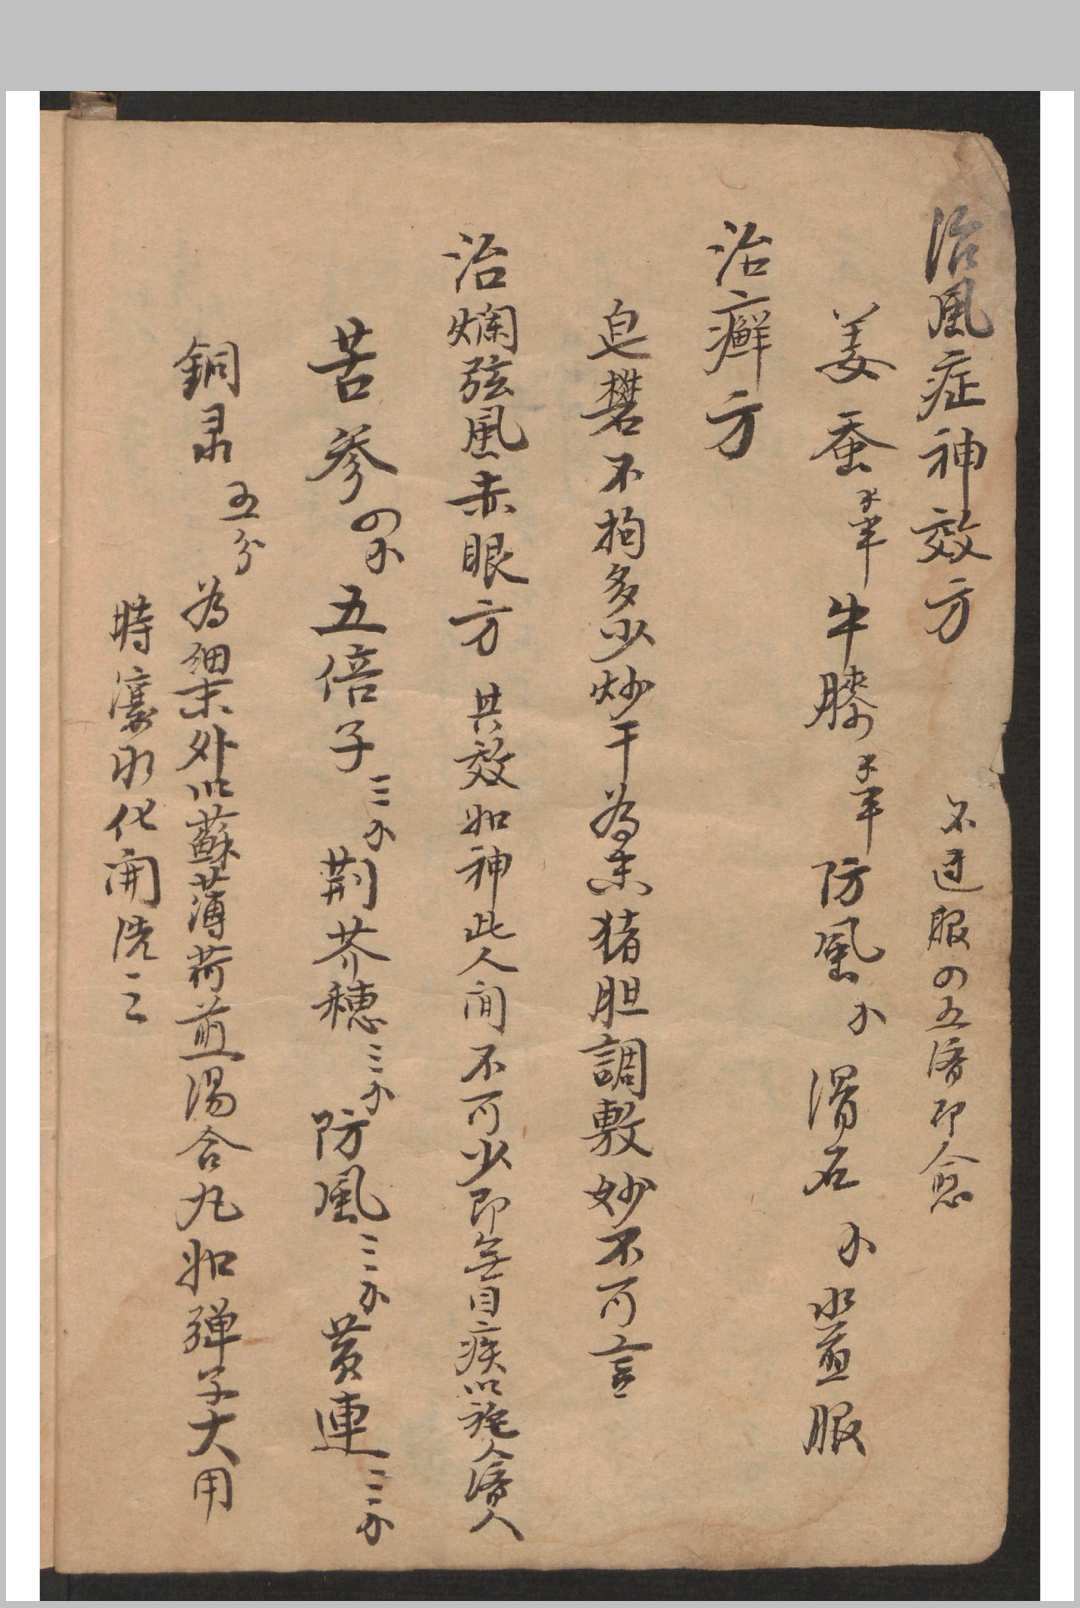 治風症神效方 不過服四五濟即愈
姜蚕 牛膝 防風 滑石 水煎服
治癬方
皂礬不拘多少炒干為末猪胆調敷妙不可言
治爛弦風赤眼方 其效如神此人间不可少即無目疾以施人濟人
苦参 五倍子 荆芥穗 防風 黄連
銅录五分 為細末外以蘇薄荷煎湯合丸如弹子大用
時滚水化開洗之